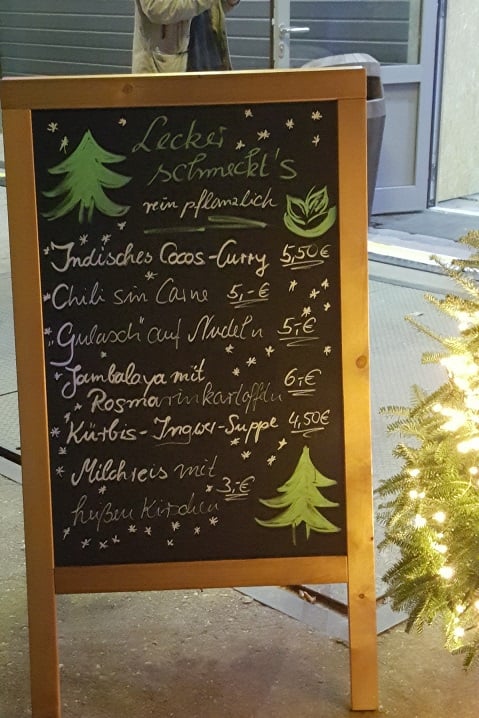 Lecker
schmeckt's
rein pflanzlich
Indisches Cocos-Curry 5,50€
Chili sin Carne 5,-€
"Gulasch" auf Nudeln 5,-€
Jambalaya mit
Rosmarinkartoffeln 6,-€
Kürbis-Ingwer-Suppe 4,50€
Milchreis mit
heißen Kirschen 3,-€